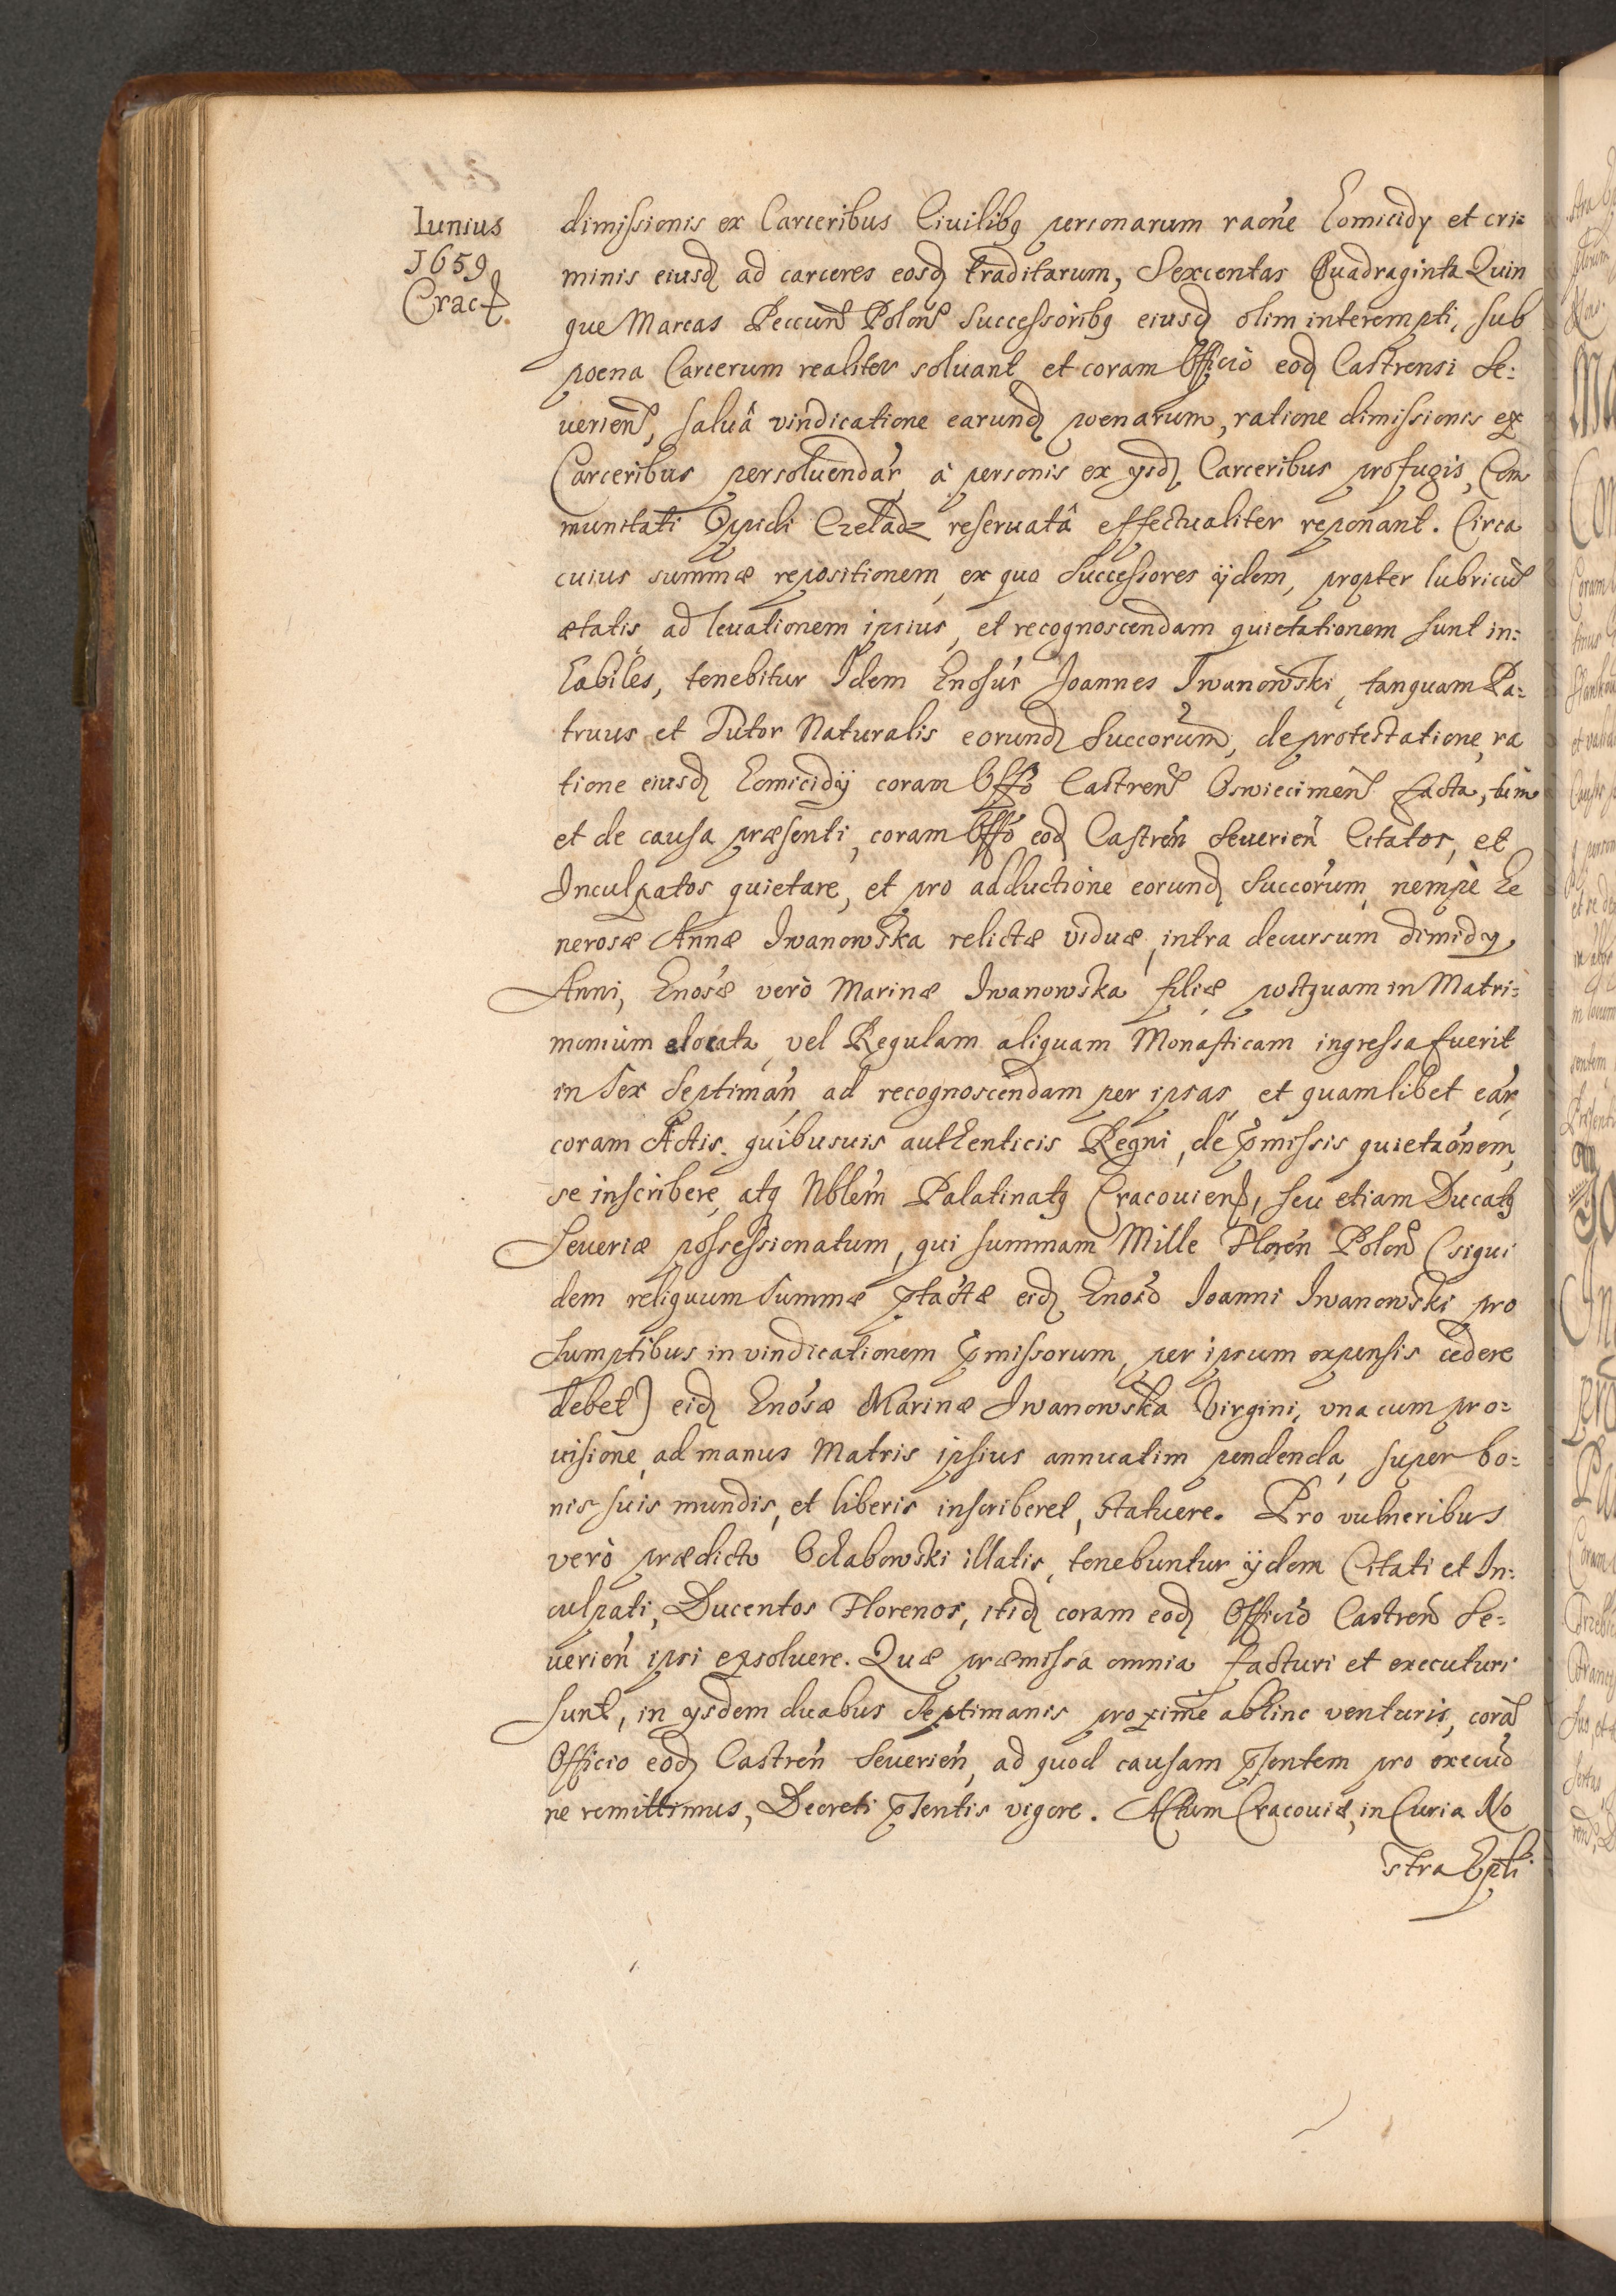 Iunius
1659
Cracꝭ.
dimissionis ex Carceribus Ciuilibꝫ personarum raōne homicidy et cri=
minis eiusdꝫ ad carceres eosdꝫ traditarum, Sexcentas Quadraginta Quin
que Marcas Peccun̄ Polon̄ Successoribꝫ eiusdꝫ olim interempti, sub
poena Carcerum realiter soluant et coram Officio eodꝫ Castrensi Se=
uerien̄, saluâ vindicatione earundꝫ poenarum, ratione dimissionis ex
Carceribus persoluendar̄, à personis ex ysdꝫ Carceribus profugis, Com
munitati Oppidi Czeladz reseruatâ effectualiter reponant. Circa
cuius summæ repositionem, ex quo Successores ijdem, propter lubricū
ætatis ad leuationem ipsius, et recognoscendam quietationem sunt in=
habiles, tenebitur Idem Gnosus Joannes Iwanowski, tanquam Pa=
truus et Tutor Naturalis eorundꝫ Succorum, de protestatione, ra
tione eiusdꝫ homicidij coram Offō Castren̄ Oswiecimen̄ facta, tùm
et de causa præsenti, coram Offō eodꝫ Castren̄ Seuerien̄ Citatos, et
Inculpatos quietare, et pro adductione eorundꝫ Succorum, nempè Ge
nerosæ Annæ Iwanowska relictæ viduæ, intra decursum dimidy
Anni, Gnosæ verò Marinæ Iwanowska filiæ, postquam in Matri=
monium elocata, vel Regulam aliquam Monasticam ingressa fuerit
in Sex Septiman̄, ad recognoscendam per ipsas, et quamlibet ear̄,
coram Actis quibusuis authenticis Regni, de p̄missis quietaōnem,
se inscribere, atqꝫ Nblem Palatinatꝫ Cracouien̄, seu etiam Ducatꝫ
Seueriæ possessionatum, qui summam Mille Floren̄ Polon̄ (siqui
dem reliquum Summæ p̄tactæ eidꝫ Gnoso Ioanni Iwanowski pro
Sumptibus in vindicationem p̄missorum, per ipsum expensis cedere
debet) eidꝫ Gnosæ Marinæ Iwanowska Virgini, vna cum pro=
uisione, ad manus Matris ipsius annuatim pendenda, super bo=
nis suis mundis, et liberis inscriberet, statuere. Pro vulneribus
verò prædicto Ochabowski illatis, tenebuntur ijdem Citati et In=
culpati, Ducentos Florenos, itidꝫ coram eodꝫ Officio Castren̄ Se=
uerien̄ ipsi exsoluere. Quæ præmissa omnia facturi et executuri
sunt, in ysdem duabus Septimanis proxime abhinc venturis, corā
Officio eodꝫ Castren̄ Seuerien̄, ad quod causam p̄sentem pro execuō
ne remittimus, Decreti p̄sentis vigore. Actum Cracouiæ, in Curia No
stra Epli